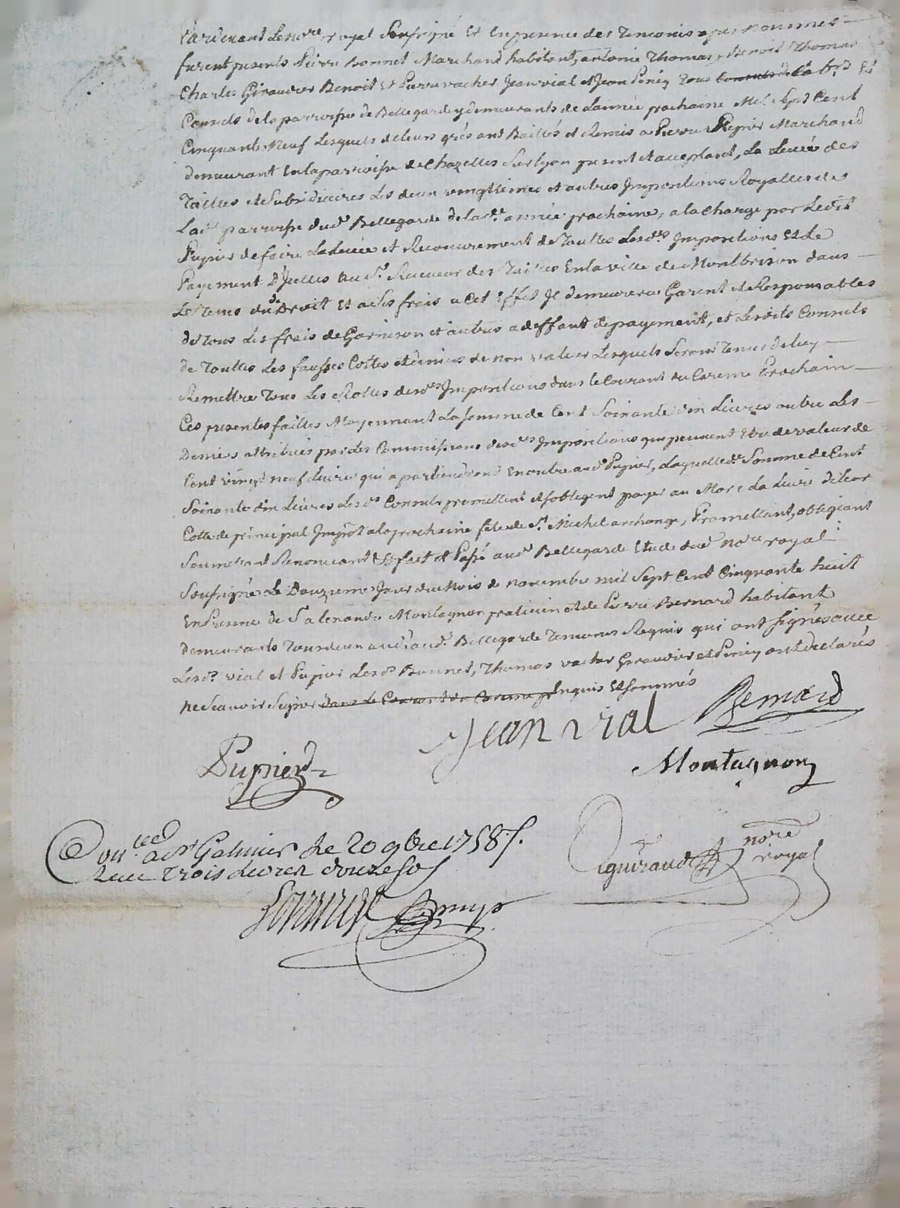 Pardevant Le nore royal Soussigné Et en presence des Temoins apres nommes
furent presents Pierre Bonnet Marchand habitant, antoine Thomas, Benoit Thomas
Charles Giraudier Benoit Et Pierre vacher Jean vial et Jean Peney Tous
Consuls de la parroisse de Bellegarde y demeurants de L'année prochaine Mil Sept Cent
Cinquante Neuf Lesquels de leurs grés ont Baillés et Remis a Pierre Pupier Marchand
demeurant En la parroisse de Chazelles Sur lyon present et acceptant, La Levée des
Tailles et Subsidiaires Les deux vingtiemes et autres Impositions Royalles de
Lade parroisse dud. Bellegarde de lade année prochaine, a la Charge par Ledit
Pupier de faire La Levée et Recouvrement de Touttes Lesdes Impositions Et de
Payement D'Jcelles au Sr. Receveur des Tailles En la ville de Montbrison dans
Le Tems du Droit Et a Ses frais a Cet Effet Il demeurera Garent et Responsables
de Tous Les frais de Garnison et autres a deffaut de payement, et Lesdits Consuls
de Touttes Les fausses Cottes et deniers de non valeur Lesquels Seront Tenus de luy
Remettre Tous Les Rolles desdes Impositions dans le Courant du Careme Prochain
Ces presentes faittes Moyennant La Somme de Cent Soixante dix Livres outre Les
Deniers attribués par Les Commissions desdes Impositions qui peuvent Etre de valeur de
Cent vingt neuf Livres qui apartiendront En outre aud. Pupier, Laquelle de Somme de Cent
Soixante dix Livres Lesd. Consuls promettent et s'obligent payer au Marc La Livre de leur
Cotte de principal Impôt a la prochaine fête de St. Michel archange, Promettant, obligeant
Soumettant Renoncant &c fait et Passé aud. Bellegarde Etude dud. nore royal
Soussigné Le Douzieme Jour du Mois de novembre mil Sept Cent Cinquante huit
En presence de Sr alexandre Montagnon praticien et de Pierre Bernard habitant
demeurants Tous deux aud. Bellegarde Temoins Requis qui ont Signés avec
Lesd. vial et Pupier Lesd. Bonnet, Thomas vacher Giraudier et Peney ont declarés
ne Scavoir Signer dans le Courant du Careme pr Enquis Et Sommés
Jean vial Bernard
Pupier
Montagnon
Conlé a St Galmier Le 20 9bre 1758.
Reçu Trois Livres douze Sols
nore royal